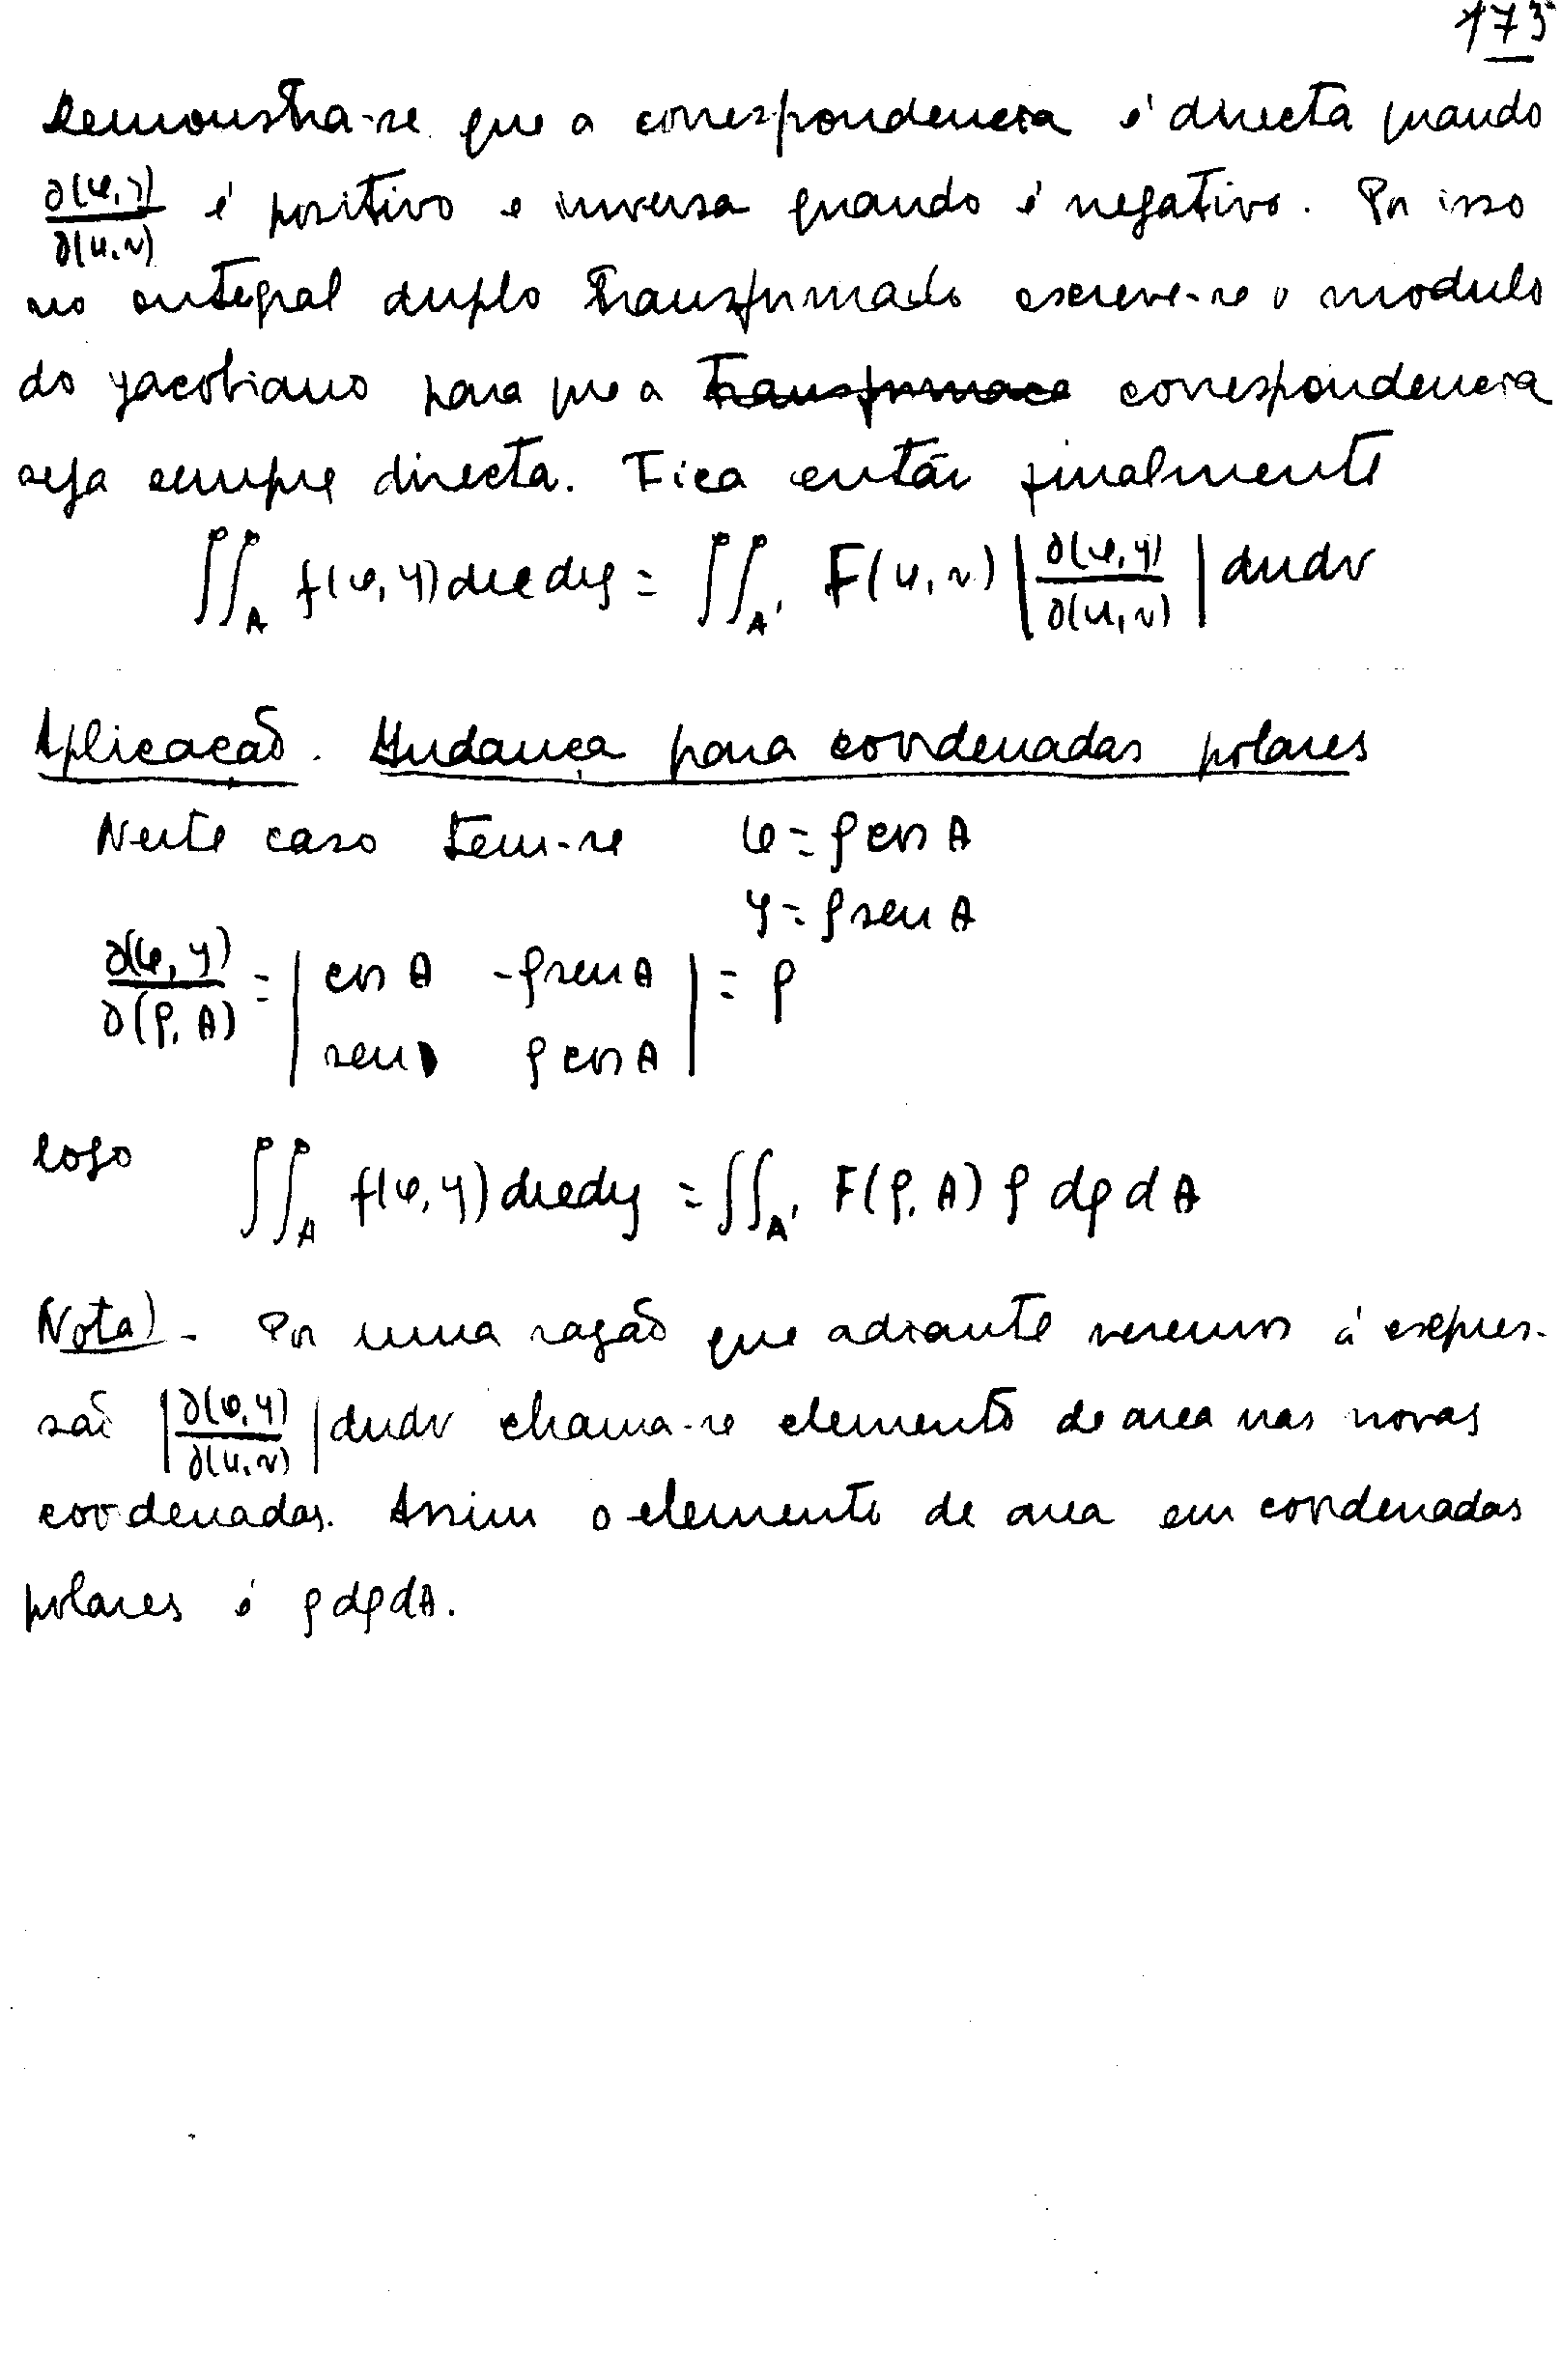 173
Demonstra-se que a correspondencia é directa quando
∂(x,y)/∂(u,v) é positivo e inversa quando é negativo. Por isso
no integral duplo transformado escreve-se o modulo
do jacobiano para que a ~~transformaca~~ correspondencia
seja sempre directa. Fica então finalmente
∫∫_A f(x,y) dx dy = ∫∫_A' F(u,v) |∂(x,y)/∂(u,v)| du dv
Aplicação. Mudança para coordenadas polares
Neste caso tem-se x = ρ cos θ
y = ρ sen θ
∂(x,y)/∂(ρ,θ) = | cos θ -ρ sen θ | = ρ
| sen θ ρ cos θ |
logo ∫∫_A f(x,y) dx dy = ∫∫_A' F(ρ,θ) ρ dρ dθ
Nota) - Por uma razão que adiante veremos á expres-
são |∂(x,y)/∂(u,v)| du dv chama-se elemento de area nas novas
coordenadas. Assim o elemento de area em coordenadas
polares é ρ dρ dθ.